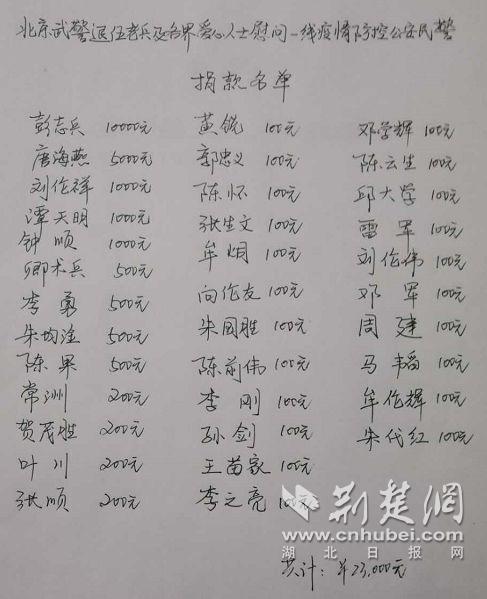 北京武警退伍老兵及各界爱心人士慰问一线疫情防控公安民警
捐款名单
彭志兵 10000元 黄锐 100元 邓学辉 100元
唐海燕 5000元 郭忠义 100元 陈云生 100元
刘作祥 1000元 陈怀 100元 邱大学 100元
谭天明 1000元 张生文 100元 雷军 100元
钟顺 1000元 牟炯 100元 刘作伟 100元
卿术兵 500元 向作友 100元 邓军 100元
李勇 500元 朱国胜 100元 周建 100元
朱均淦 500元 陈前伟 100元 马韬 100元
陈果 500元 李刚 100元 牟作辉 100元
常洲 200元 孙剑 100元 朱代红 100元
贺茂胜 200元 王苗家 100元
叶川 200元 李之亮 100元
张顺 200元
荆楚网
www.cnhubei.com
湖北日报网
共计：¥23,000元